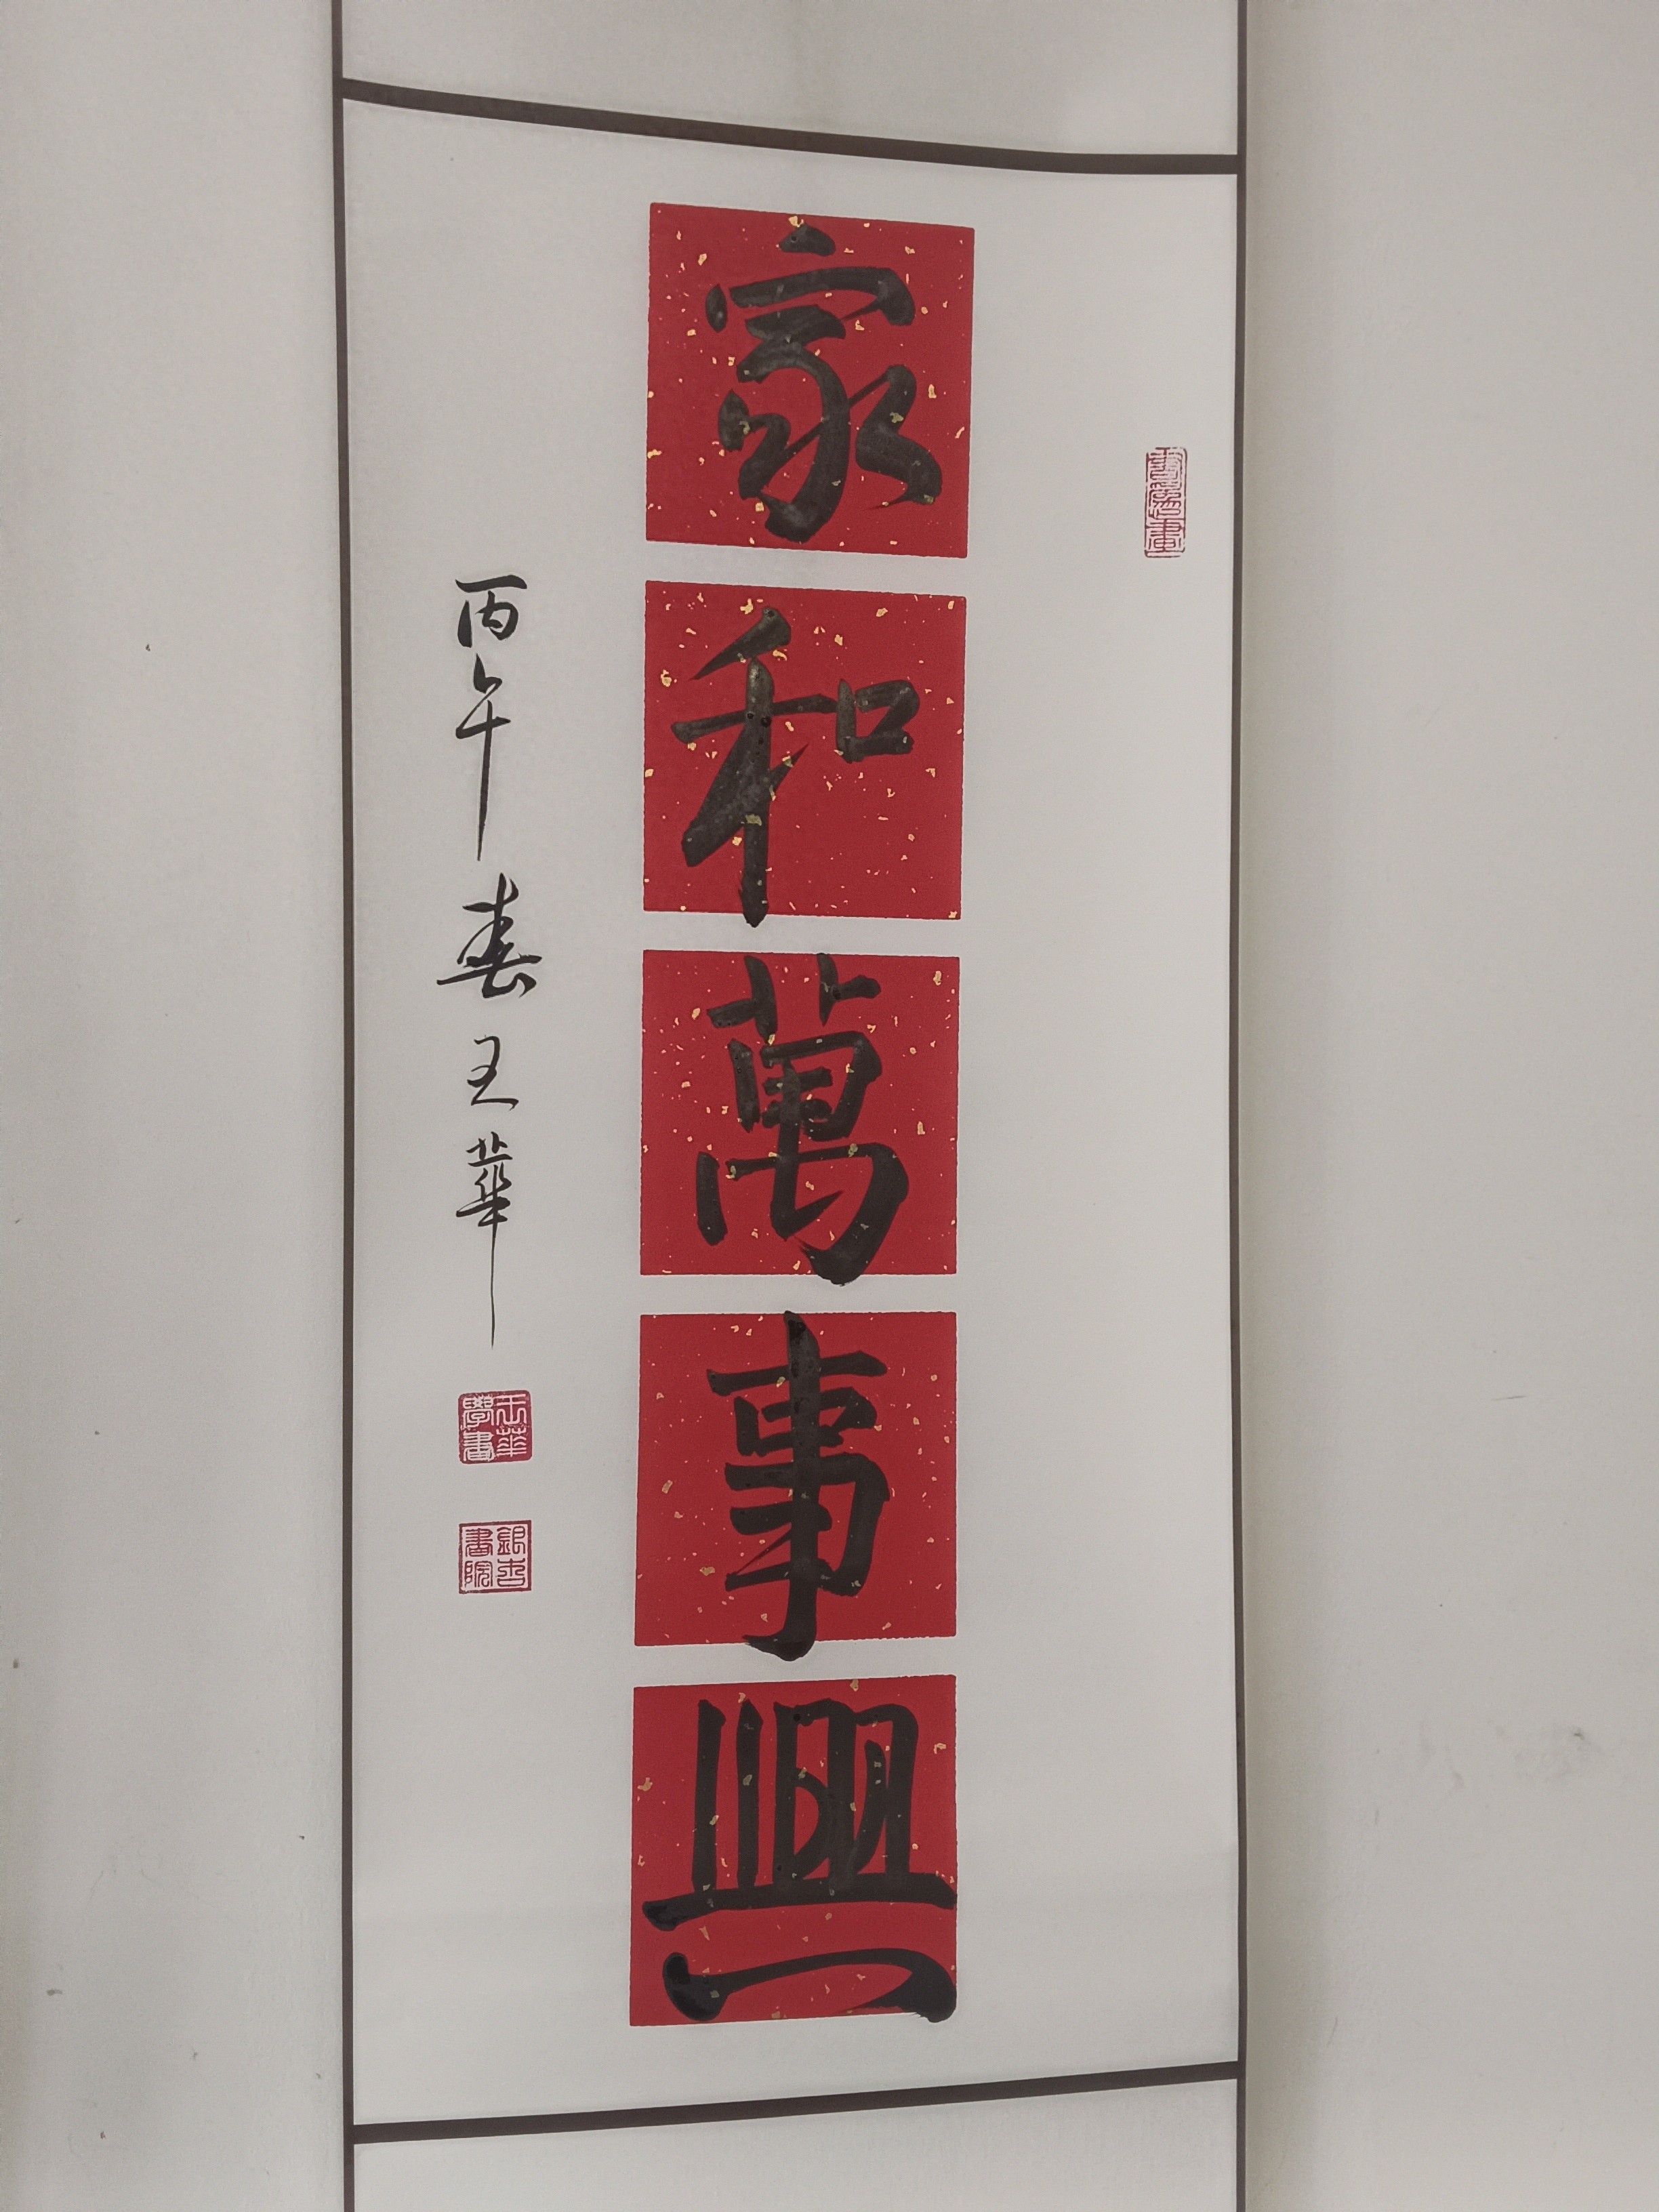 家和萬事興
丙午春王華
王華學書
銀杏書院